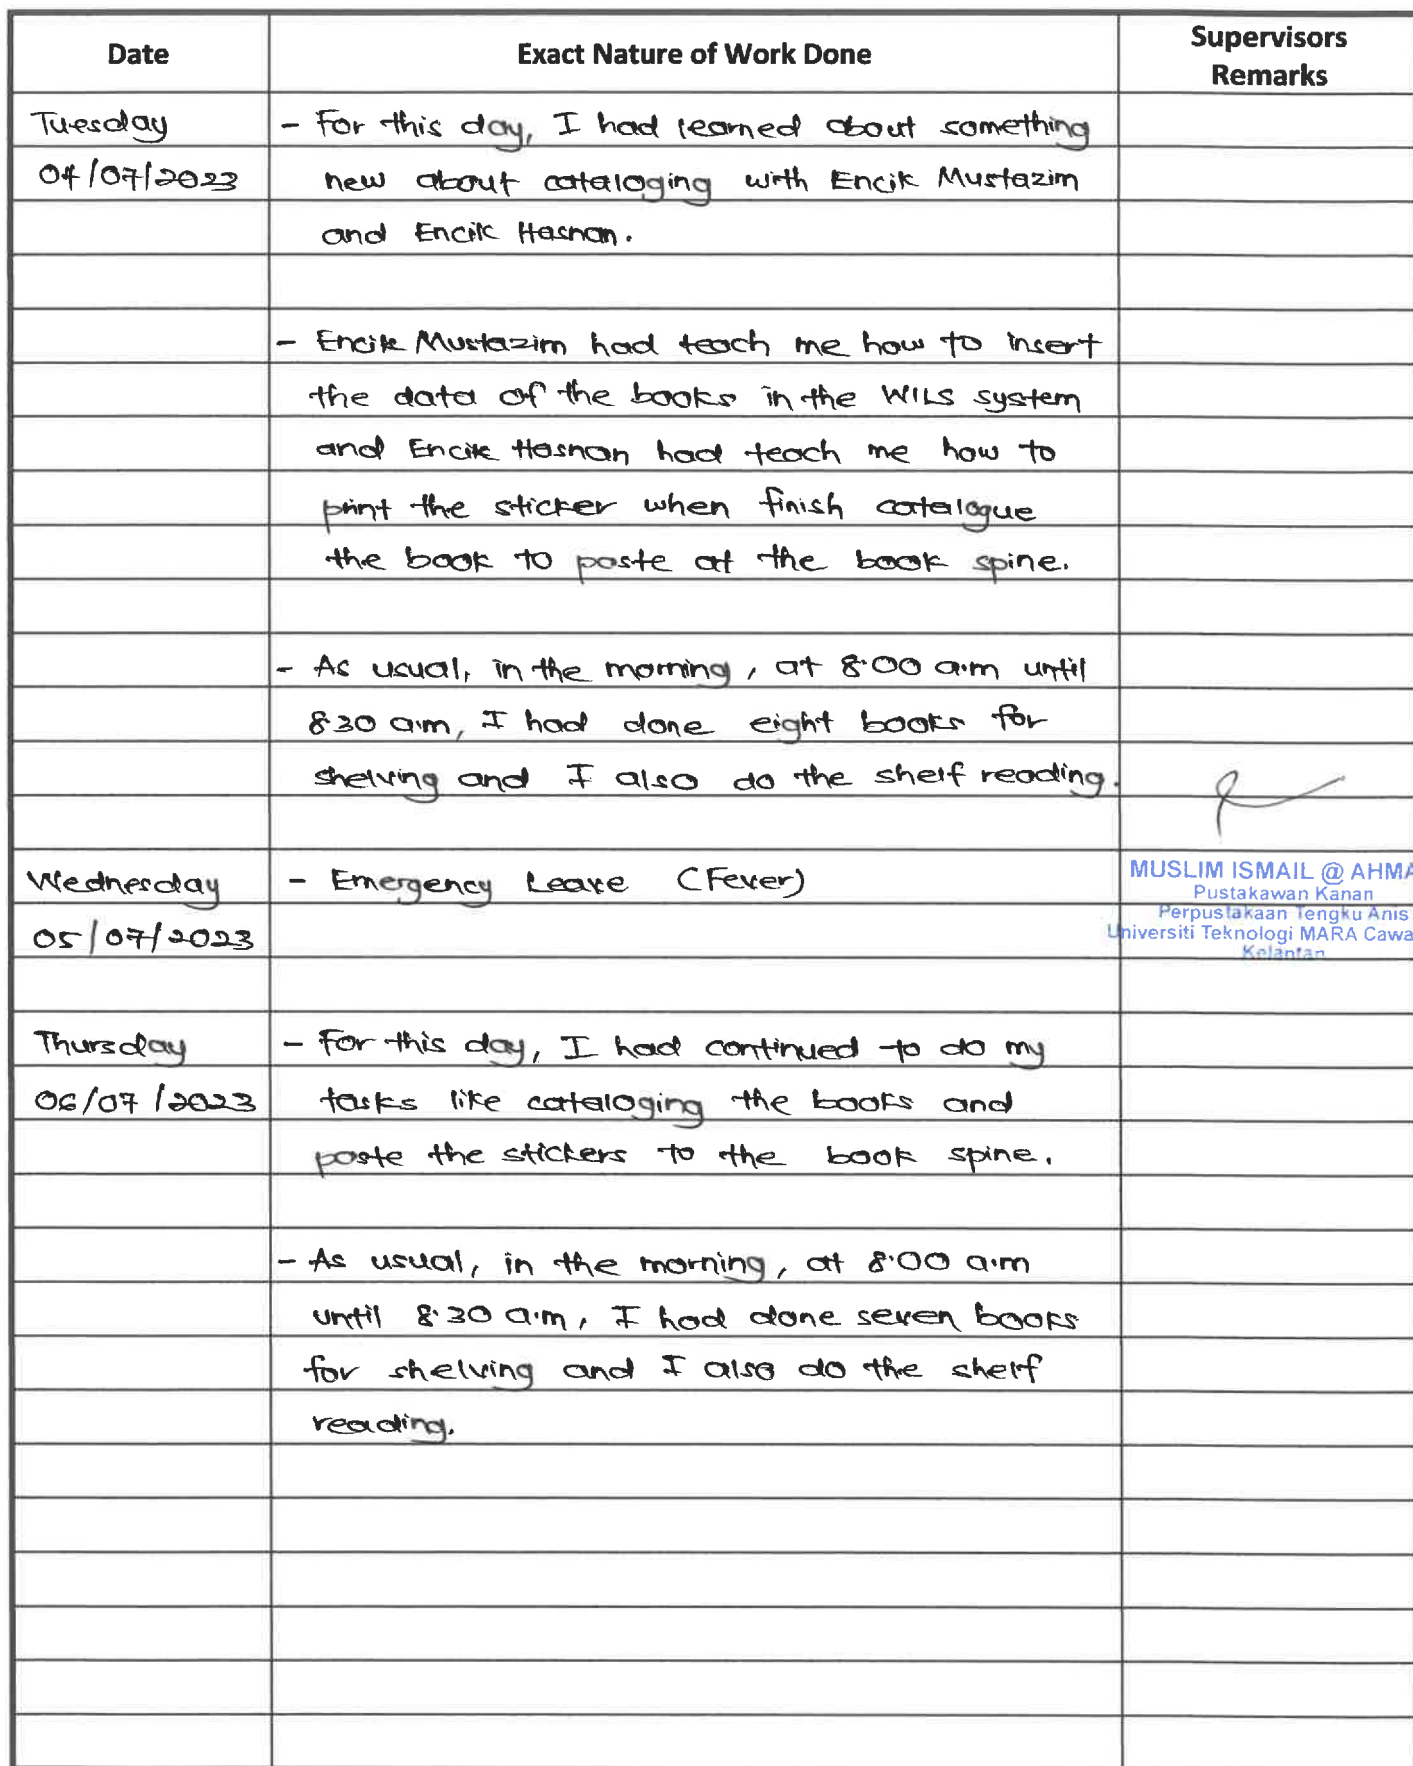 Date Exact Nature of Work Done Supervisors Remarks
Tuesday - For this day, I had learned about something
04/07/2023 new about cataloging with Encik Mustazim
and Encik Hasnan.
- Encik Mustazim had teach me how to insert
the data of the books in the WILS system
and Encik Hasnan had teach me how to
print the sticker when finish catalogue
the book to paste at the book spine.
- As usual, in the morning, at 8.00 a.m until
8.30 a.m, I had done eight books for
shelving and I also do the shelf reading.
Wednesday - Emergency Leave (Fever) MUSLIM ISMAIL @ AHMA
Pustakawan Kanan
05/07/2023 Perpustakaan Tengku Anis
Universiti Teknologi MARA Cawa
Kelantan
Thursday - For this day, I had continued to do my
06/07/2023 tasks like cataloging the books and
paste the stickers to the book spine.
- As usual, in the morning, at 8.00 a.m
until 8.30 a.m, I had done seven books
for shelving and I also do the shelf
reading.